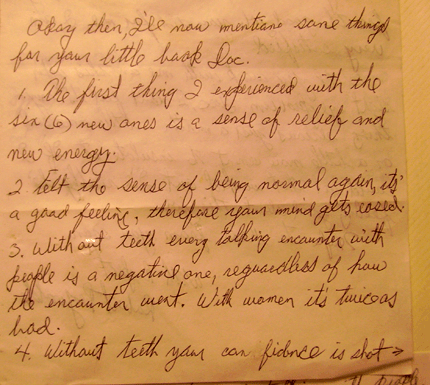 Okay then, I'll now mentione some things
for your little book Doc.
1. The first thing I experienced with the
six (6) new ones is a sense of relief and
new energy.
2 Felt the sense of being normal again, it's
a good feeling, therefore your mind gets eased.
3. Without teeth every talking encounter with
people is a negative one, reguardless of how
the encounter went. With women it's twice as
bad.
4. Without teeth your confidnce is shot →